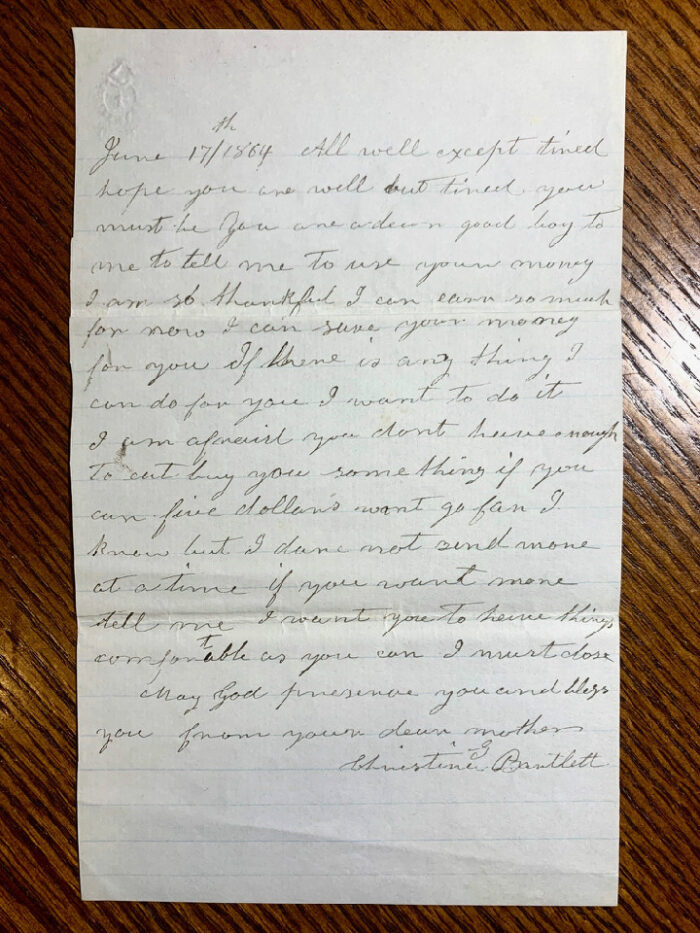 June 17th/1864 All well except tired
hope you are well but tired you
must be You are a dear good boy to
me to tell me to use your money
I am so thankful I can earn so much
for now I can save your money
for you If there is any thing I
can do for you I want to do it
I am afraid you dont have enough
to eat buy you some thing if you
can five dollars wont go far I
know but I dare not send more
at a time if you want more
tell me I want you to have things
comfortable as you can I must close
May God preserve you and bless
you from your dear mother
Christine G Bartlett